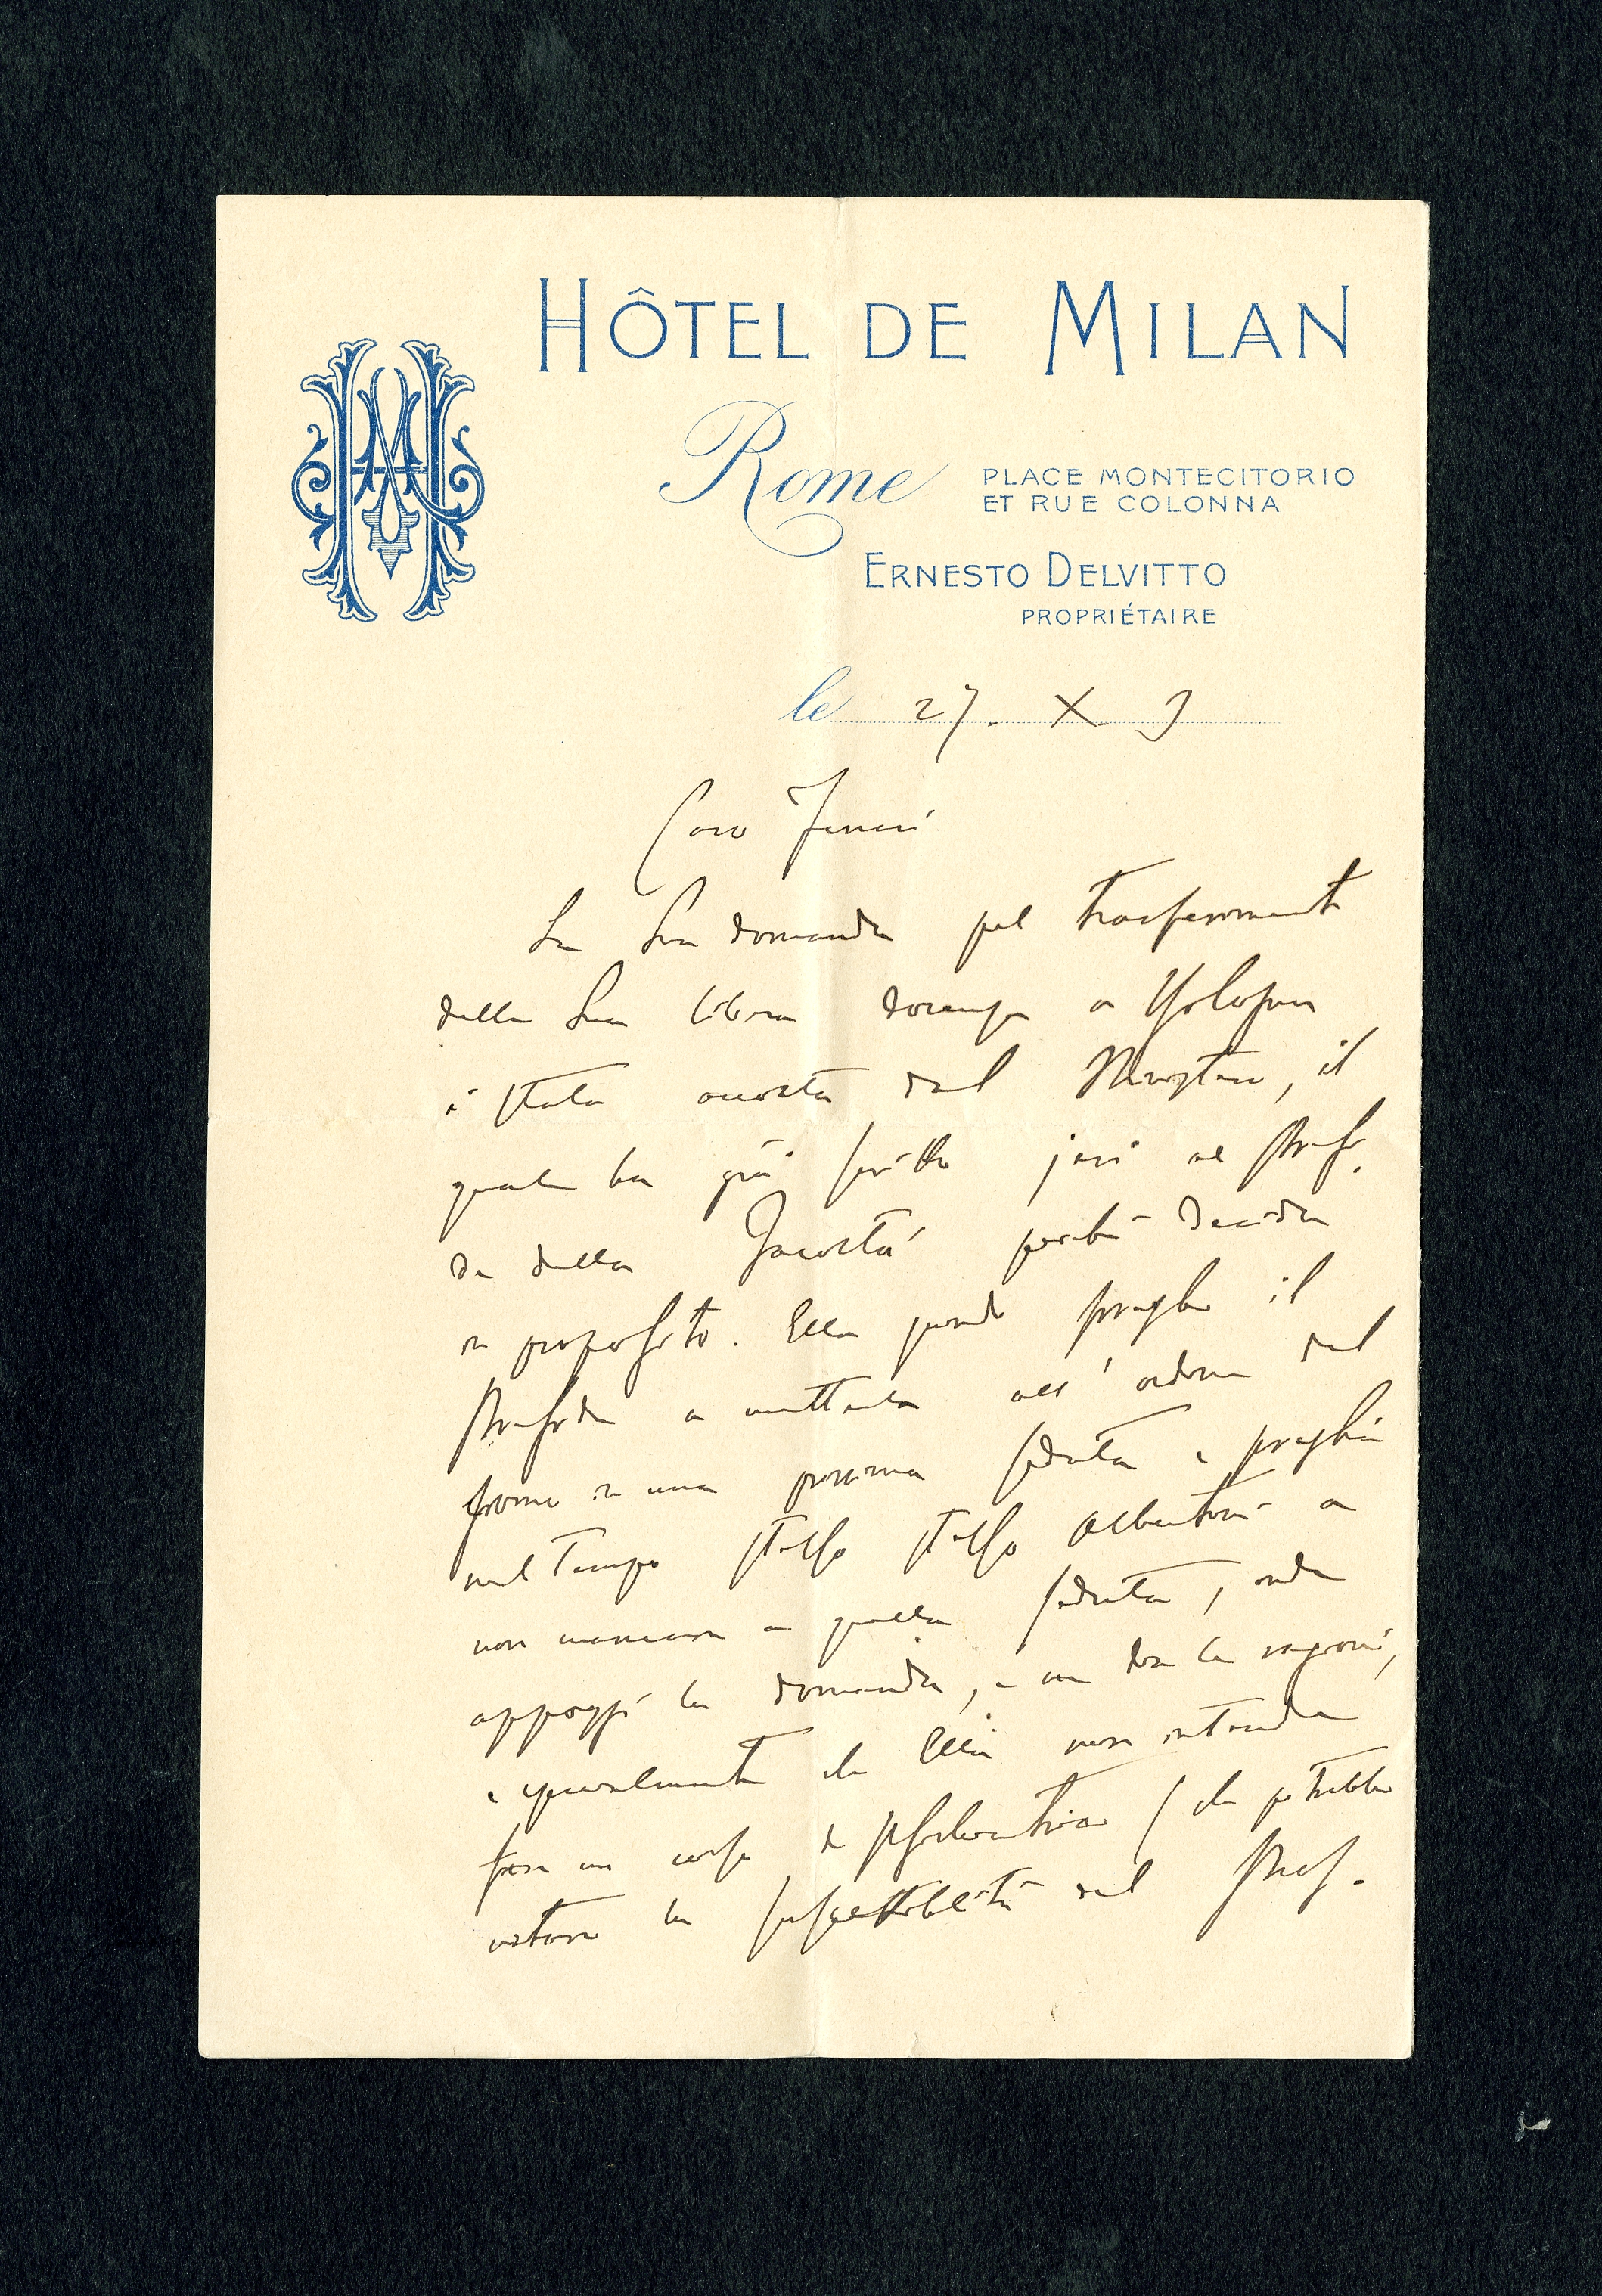 HÔTEL DE MILAN
Rome
PLACE MONTECITORIO
ET RUE COLONNA
ERNESTO DELVITTO
PROPRIÉTAIRE
le 27. X. 3
Caro Ferrari
La Sua domanda pel trasferimento
della Sua libera docenza a Bologna
è stata accolta dal Ministero, il
quale ha già scritto jeri al Presi
de della Facoltà perché decida
in proposito. Ella quindi preghi il
Preside a metterla all'ordine del
giorno in una prossima seduta e preghi
nel tempo stesso stesso Albertoni a
non mancare a quella seduta, onde
appoggi la domanda, e ne dia le ragioni,
e specialmente che Ella non intende
fare un corso di psichiatria (che potrebbe
urtare la suscettibilità del Prof.